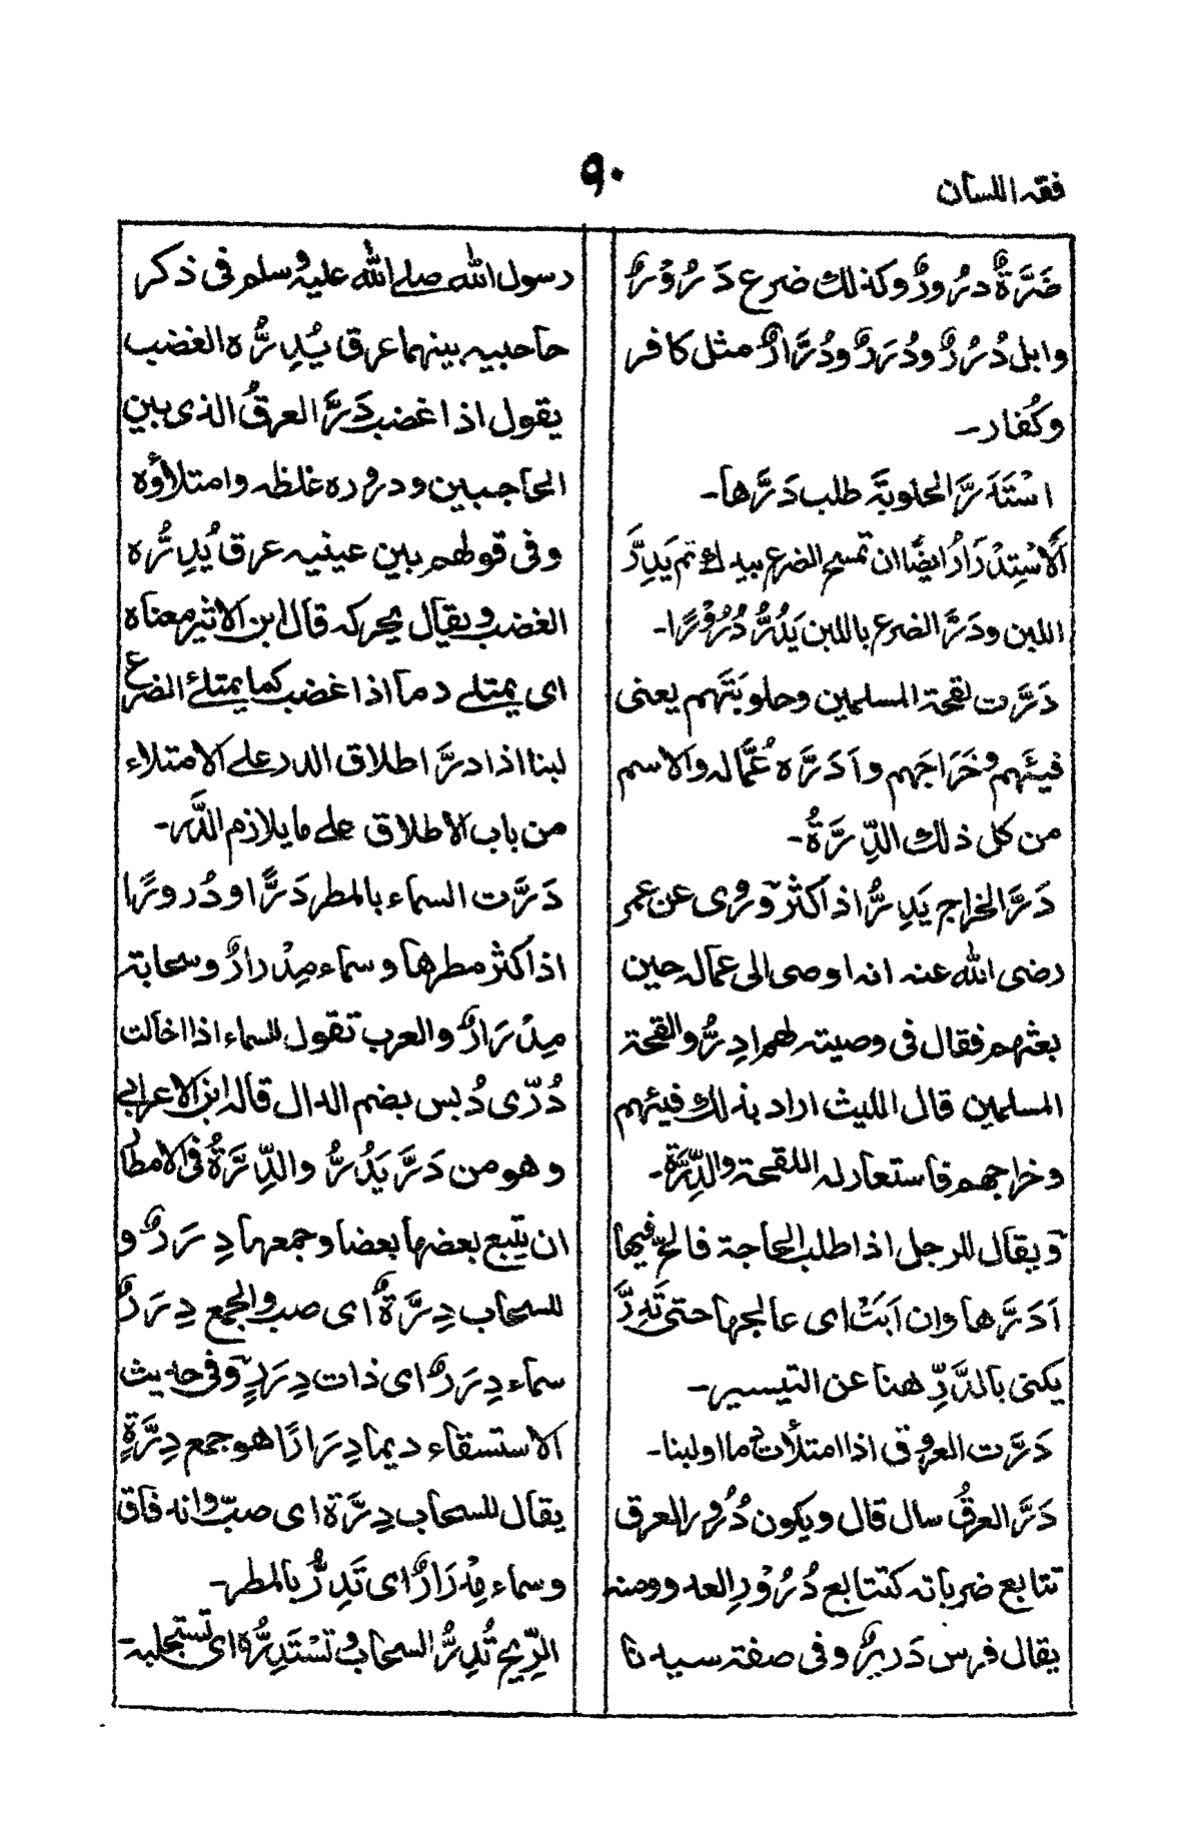 فقہ اللسان
۹۰
ضَرَّةٌ دَرُورٌ وكذلك ضرع دَرُوْرٌ
وابل دُرُرٌ ودُرَرٌ ودُرَّارٌ مثل كافر
وكُفار۔
اسْتَدَرَّ الحلوبَةَ طلب دَرَّها۔
اَلْاسْتِدْرَارُ ايضًا ان تمسح الضرع بيدك ثم يَدِرَّ
اللبن ودَرَّ الضرع باللبن يَدُرُّ دُرُوْرًا۔
دَرَّت لقحة المسلمين وحلوبَتَهم يعنى
فيئهم وخَرَاجَهم وأَدَرَّه عُمَّاله والاسم
من كل ذلك الدِّرَّةُ۔
دَرَّ الخراج يَدِرُّ اذا كثر وروى عن عمر
رضى الله عنه انه اوصى الى عماله حين
بعثهم فقال فى وصيته لهم ادِرُّوا لقحة
المسلمين قال الليث اراد بذلك فيئهم
وخراجهم فاستعار له اللقحة والدِّرَّة۔
ويقال للرجل اذا طلب الحاجة فالح فيها
اَدَرَّها وان اَبَتْ اى عالجها حتى تَدِرَّ
يكنى بالدَّرِّ هنا عن التيسير۔
دَرَّت العروق اذا امتلأت ما اولبنا۔
دَرَّ العرقُ سال قال ويكون دُرُور العرق
تتابع ضرباته كتتابع دُرُوْرِ العدو ومنه
يقال فرس دَرِيْرٌ وفى صفة سيدنا
رسول الله صلے الله عليه وسلم فى ذكر
حاجبيه بينهما عرق يُدِرُّه الغضب
يقول اذا غضب دَرَّ العرقُ الذى بين
الحاجبين ودروره غلظه وامتلاؤه
وفى قولهم بين عينيه عرق يُدِرُّه
الغضب ويقال يحركه قال ابن الاثير معناه
اى يمتلے دما اذا غضب كما يمتلئ الضرع
لبنا اذا درَّ اطلاق الدر علے الامتلاء
من باب الاطلاق علے ما يلازم الدَّر۔
دَرَّت السماء بالمطر دَرًّا و دُرورًا
اذا كثر مطرها وسماء مِدْرارٌ وسحابة
مِدْرَارٌ والعرب تقول للسماء اذا اخالت
دُرّى دُبس بضم الدال قاله ابن الاعرابى
وهو من دَرَّ يَدُرُّ والدِّرَّةُ فى الامطار
ان يتبع بعضها بعضا وجمعها دِرَرٌ و
للسحاب دِرَّةٌ اى صب والجمع دِرَرٌ
سماء دِرَرٌ اى ذات دِرَرٍ وفى حديث
الاستسقاء ديما دِرَرًا هو جمع دِرَّةٍ
يقال للسحاب دِرَّة اى صبّ وانه فاق
وسماء مِدْرَارٌ اى تَدِرُّ بالمطر۔
الرِّيح تُدِرُّ السحاب وتَسْتَدِرُّه اى تستجلبه۔